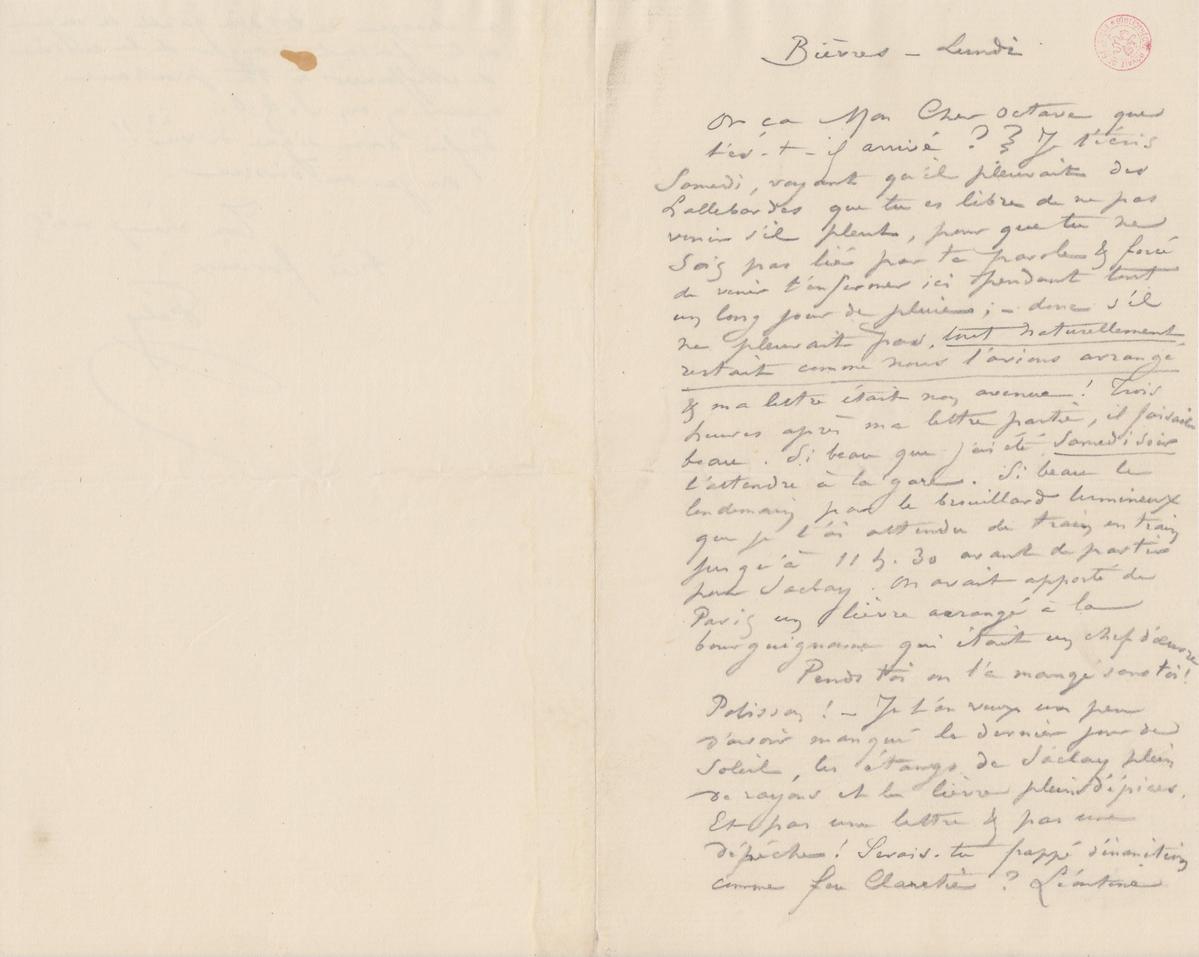 Bièvres – Lundi
Or ça Mon Cher Octave que
t'es-t-il arrivé ? Je t'écris
Samedi, voyant qu'il pleuvait des
hallebardes que tu es libre de ne pas
venir s'il pleut, pour que tu ne
Sois pas lié par ta parole & forcé
de venir t'enfermer ici pendant tout
un long jour de pluie ; – donc s'il
ne pleuvait pas, tout naturellement
restait comme nous l'avions arrangé
& ma lettre était non avenue ! Trois
heures après ma lettre partie, il faisait
beau. Si beau que j'ai été Samedi soir
t'attendre à la gare. Si beau le
lendemain par le brouillard lumineux
que je t'ai attendu de train en train
jusqu'à 11 h. 30 avant de partir
pour Saclay. On avait apporté de
Paris un lièvre arrangé à la
bourguignonne qui était un chef d'œuvre
Pends toi on l'a mangé sans toi !
Polisson ! – Je t'en veux un peu
d'avoir manqué le dernier jour de
Soleil, les étangs de Saclay plein
de rayons et le lièvre plein d'épices.
Et pas une lettre & pas une
dépêche ! Serais-tu frappé d'inanition
comme feu Claretie ? Léontine